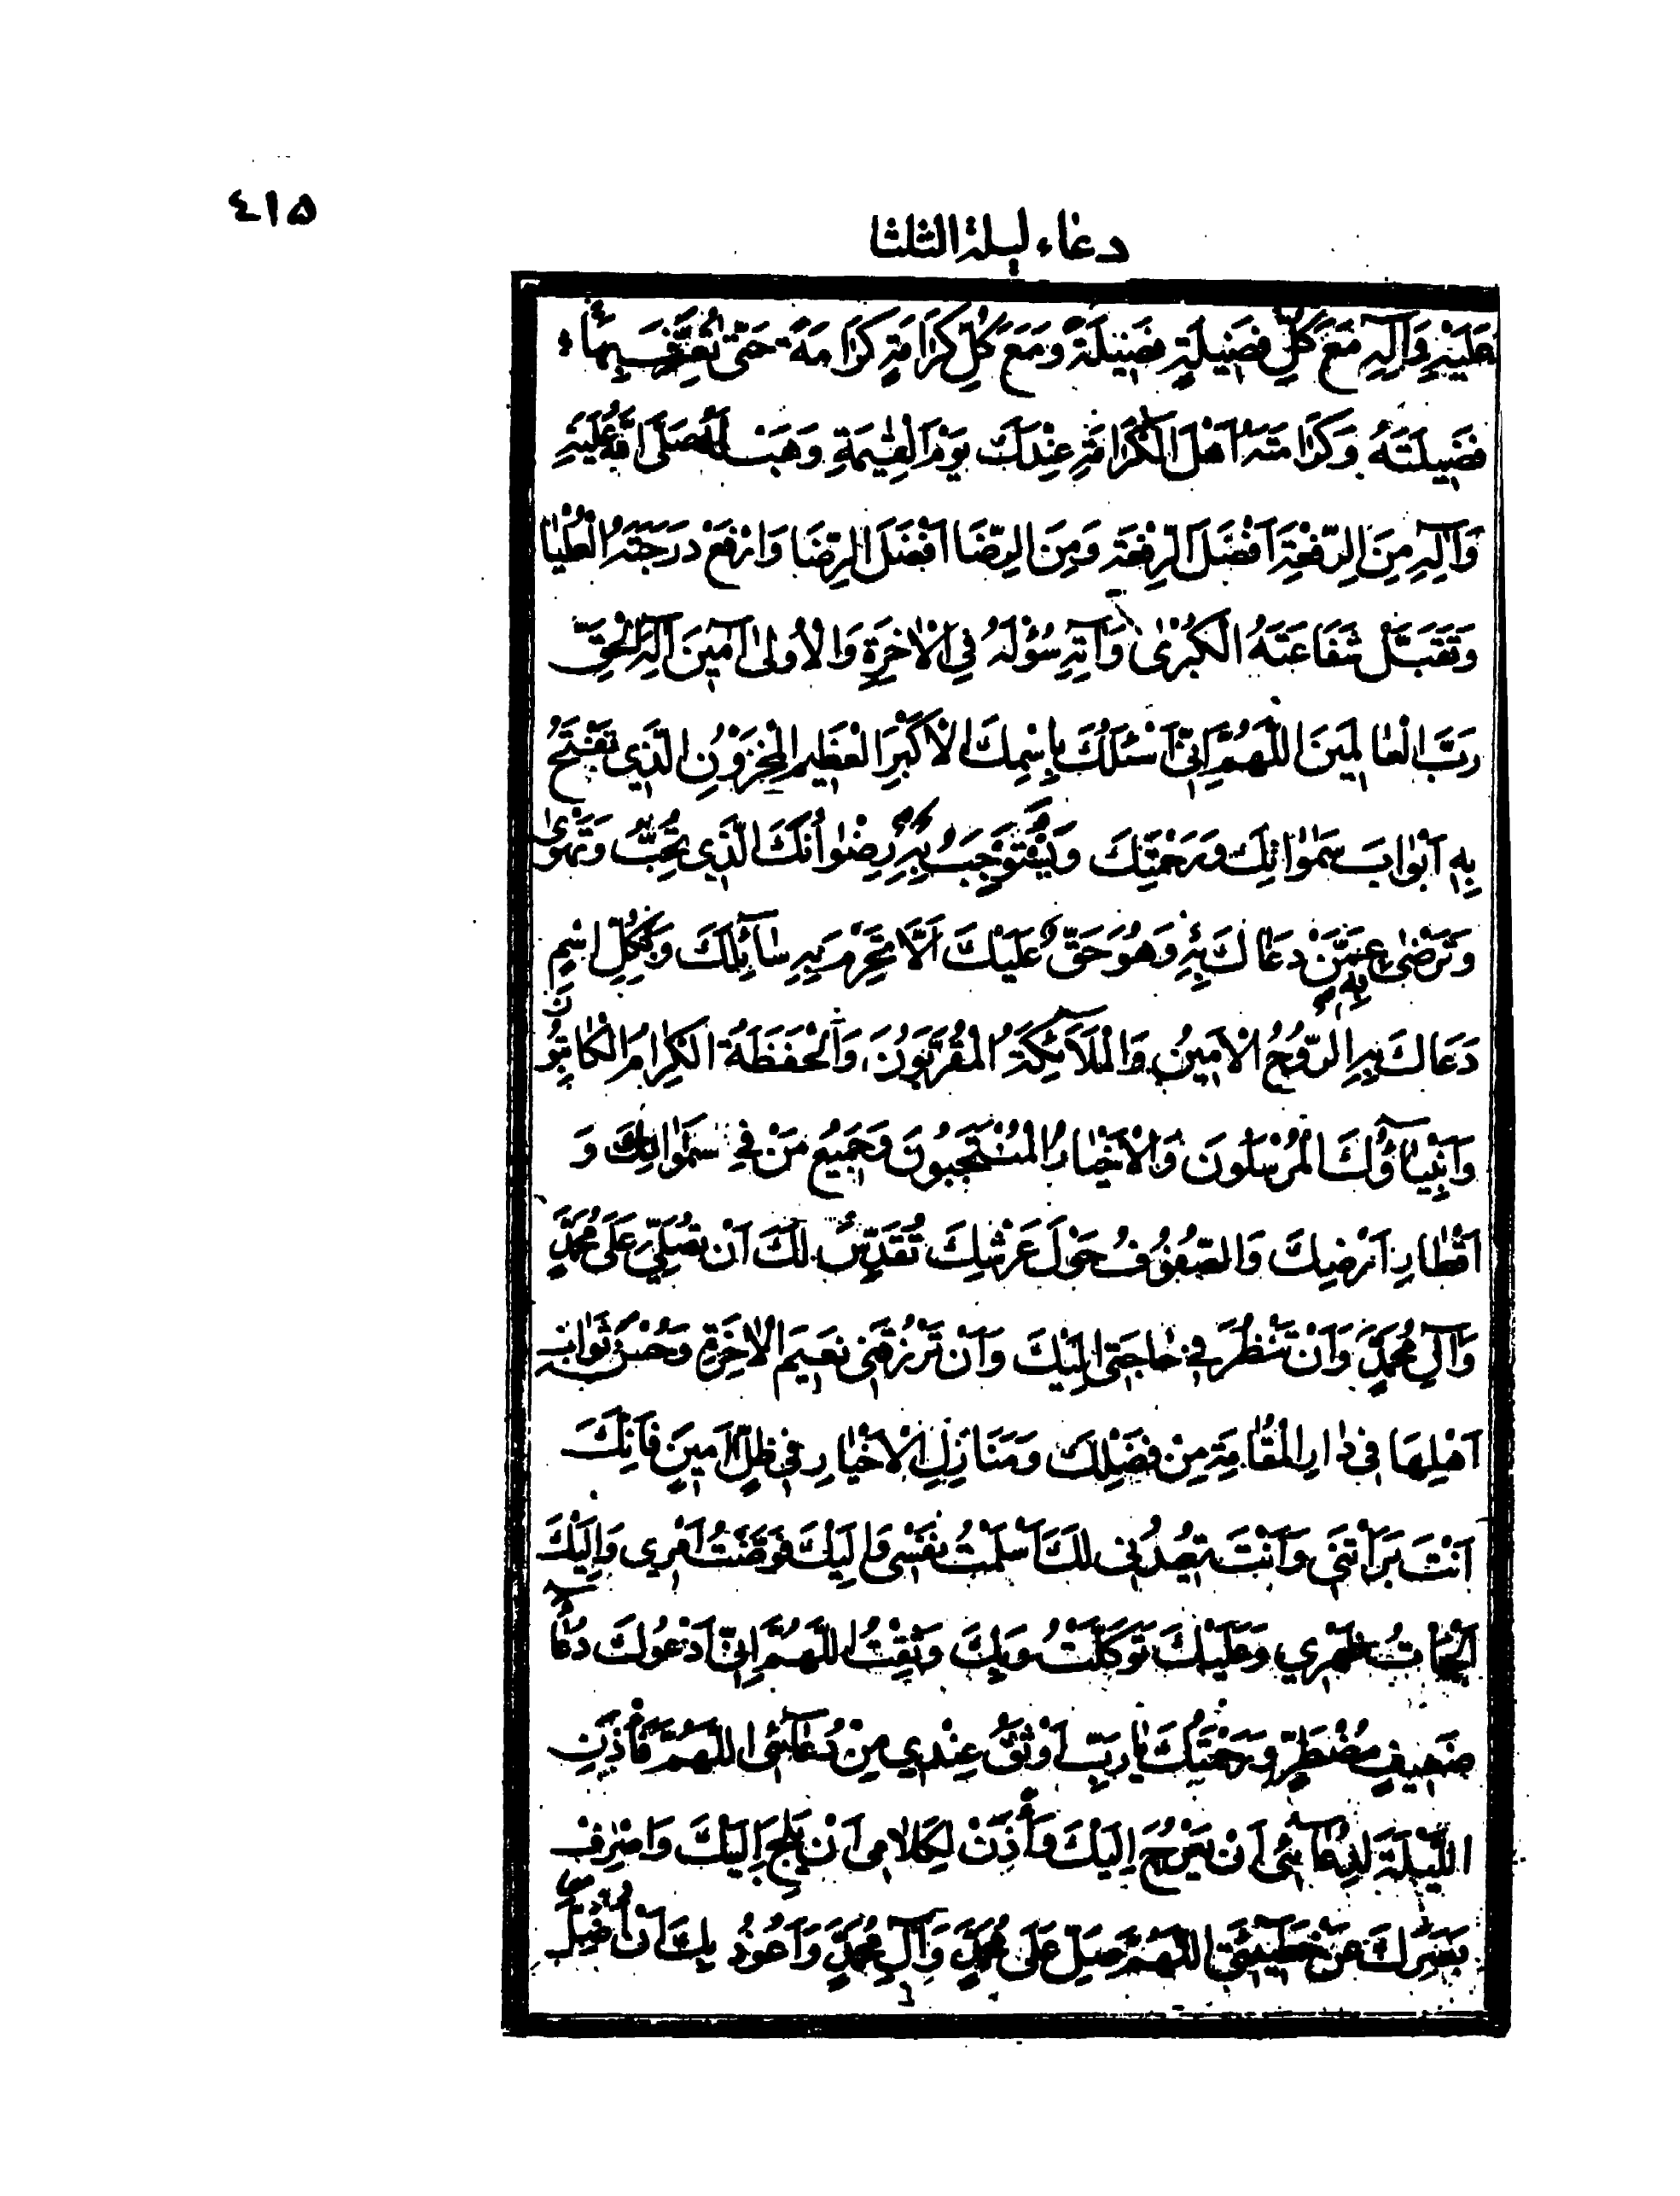 ٤١۵
دعاء ليلة الثلثا
عَلَيْهِ وَآلِهِ مَعَ كُلِّ فَضِيلَةٍ فَضِيلَةً وَمَعَ كُلِّ كَرَامَةٍ كَرَامَةً حَتّىٰ تُعَرِّفَ بِهَا
فَضِيلَتَهُ وَكَرَامَتَهُ اَهْلَ الْكَرَامَةِ عِنْدَكَ يَوْمَ الْقِيٰمَةِ وَهَبْ لَهُ صَلَّى اللهُ عَلَيْهِ
وَآلِهِ مِنَ الرِّفْعَةِ اَفْضَلَ الرِّفْعَةِ وَمِنَ الرِّضَا اَفْضَلَ الرِّضَا وَارْفَعْ دَرَجَتَهُ الْعُلْيٰا
وَتَقَبَّلْ شَفَاعَتَهُ الْكُبْرىٰ وَآتِهِ سُؤْلَهُ فِي الْاٰخِرَةِ وَالْاُولىٰ آمِينَ اِلٰهَ الْحَقِّ
رَبَّ الْعٰالَمِينَ اللّٰهُمَّ اِنّي اَسْئَلُكَ بِاِسْمِكَ الْاَكْبَرِ الْعَظِيمِ الْمَخْزُونِ الَّذِي تَفْتَحُ
بِهِ اَبْوٰابَ سَمٰوٰاتِكَ وَرَحْمَتِكَ وَيَسْتَوْجِبُ بِهِ رِضْوٰانَكَ الَّذِي تُحِبُّ وَتَهْوىٰ
وَتَرْضىٰ عَمَّنْ دَعَاكَ بِهِ وَهُوَ حَقٌّ عَلَيْكَ اَلّٰا تَحْرِمَ بِهِ سٰائِلَكَ وَبِكُلِّ اسْمٍ
دَعَاكَ بِهِ الرُّوحُ الْاَمِينُ وَالْمَلَآئِكَةُ الْمُقَرَّبُونَ وَالْحَفَظَةُ الْكِرَامُ الْكٰاتِبُونَ
وَاَنْبِيٰآؤُكَ الْمُرْسَلُونَ وَالْاَخْيٰارُ الْمُنْتَجَبُونَ وَجَمِيعُ مَنْ فِي سَمٰوٰاتِكَ وَ
اَقْطٰارِ اَرْضِكَ وَالصُّفُوفُ حَوْلَ عَرْشِكَ تُقَدِّسُ لَكَ اَنْ تُصَلِّيَ عَلىٰ مُحَمَّدٍ
وَآلِ مُحَمَّدٍ وَاَنْ تَنْظُرَ فِي حٰاجَتِي اِلَيْكَ وَاَنْ تَرْزُقَنِي نَعِيمَ الْاٰخِرَةِ وَحُسْنَ ثَوٰابِ
اَهْلِهَا فِي دٰارِ الْمُقٰامَةِ مِنْ فَضْلِكَ وَمَنَازِلِ الْاَخْيٰارِ فِي ظِلٍّ اَمِينٍ فَاِنَّكَ
اَنْتَ بَرَأْتَنِي وَاَنْتَ تُعِيدُنِي لَكَ اَسْلَمْتُ نَفْسِي وَاِلَيْكَ فَوَّضْتُ اَمْرِي وَاِلَيْكَ
اَلْجَأْتُ ظَهْرِي وَعَلَيْكَ تَوَكَّلْتُ وَبِكَ وَثِقْتُ اللّٰهُمَّ اِنّي اَدْعُوكَ دُعٰاءَ
ضَعِيفٍ مُضْطَرٍّ وَرَحْمَتُكَ يٰا رَبِّ اَوْثَقُ عِنْدِي مِنْ دُعٰآئِي اللّٰهُمَّ فَأْذَنِ
اللَّيْلَةَ لِدُعٰآئِي اَنْ يَعْرُجَ اِلَيْكَ وَأْذَنْ لِكَلَامِي اَنْ يَلِجَ اِلَيْكَ وَاصْرِفْ
بَصَرَكَ عَنْ خَطِيئَتِي اللّٰهُمَّ صَلِّ عَلىٰ مُحَمَّدٍ وَآلِ مُحَمَّدٍ وَاَعُوذُ بِكَ اَنْ اَضِلَّ